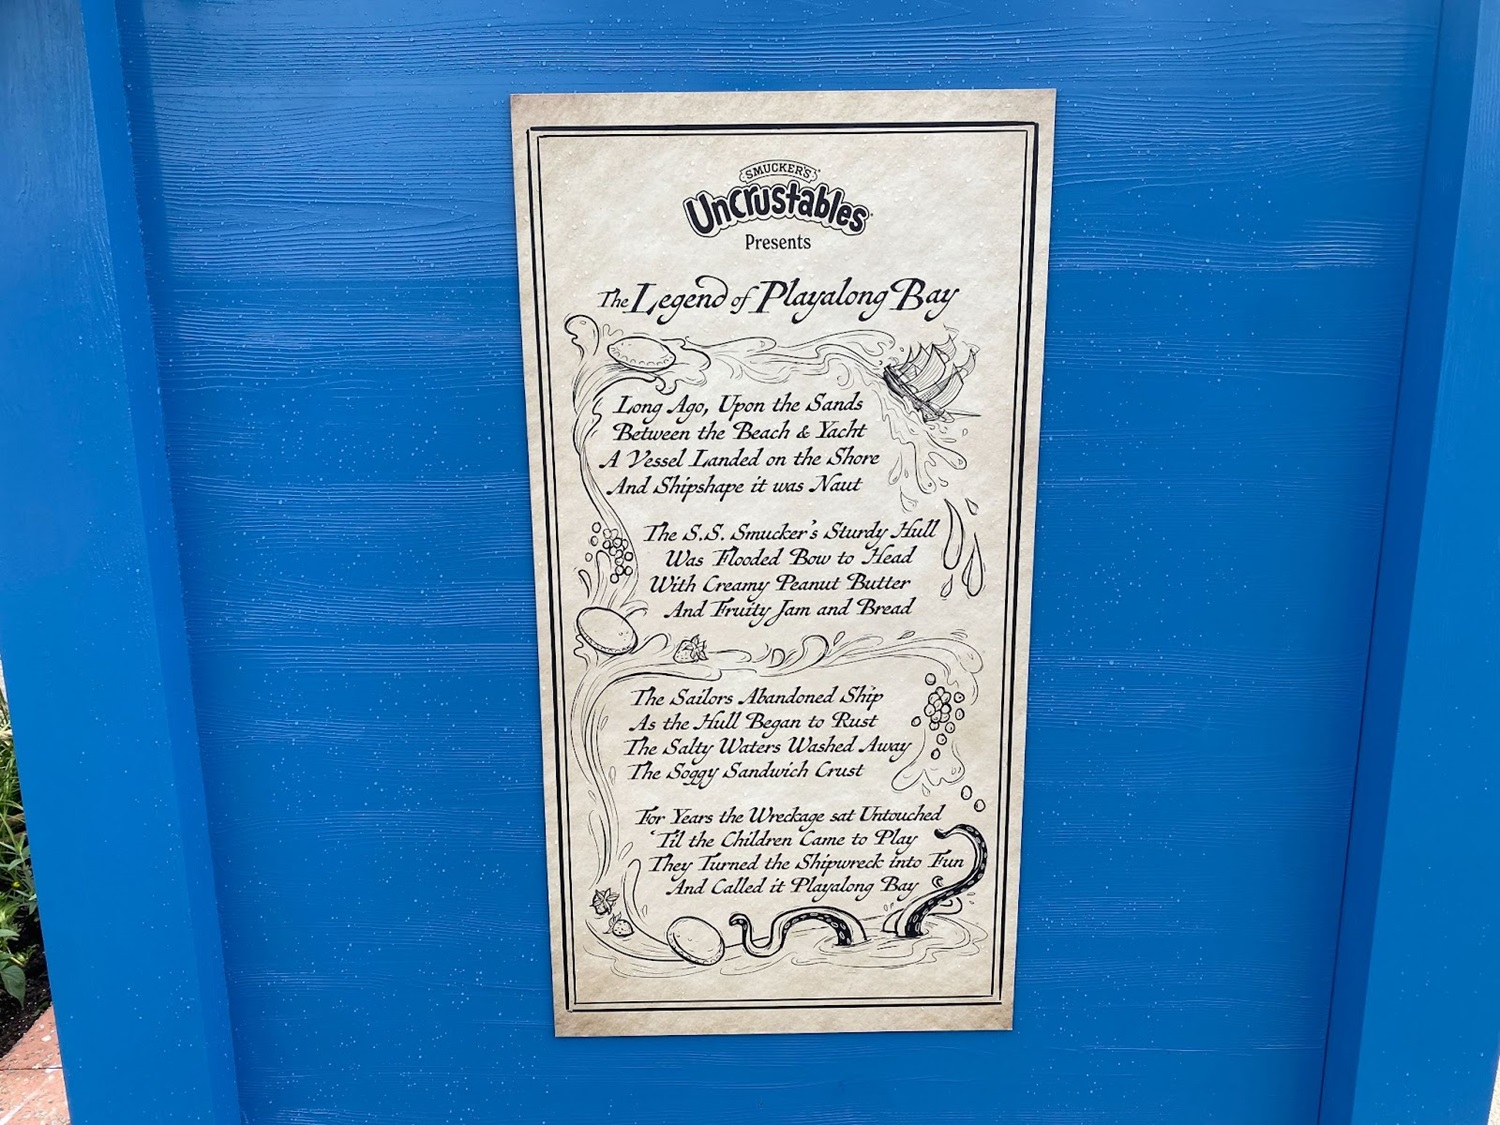 SMUCKER'S
UNCRUSTABLES
Presents
The Legend of Playalong Bay
Long Ago, Upon the Sands
Between the Beach & Yacht
A Vessel Landed on the Shore
And Shipshape it was Naut
The S.S. Smucker's Sturdy Hull
Was Flooded Bow to Head
With Creamy Peanut Butter
And Fruity Jam and Bread
The Sailors Abandoned Ship
As the Hull Began to Rust
The Salty Waters Washed Away
The Soggy Sandwich Crust
For Years the Wreckage sat Untouched
'Til the Children Came to Play
They Turned the Shipwreck into Fun
And Called it Playalong Bay